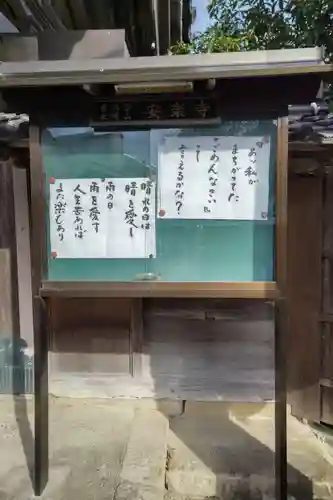 あッ私が
まちがってた
ごめんなさい
って
言えるかな?
晴れの日は
晴を愛し
雨の日は
雨を愛す
人生苦あれば
また楽しあり